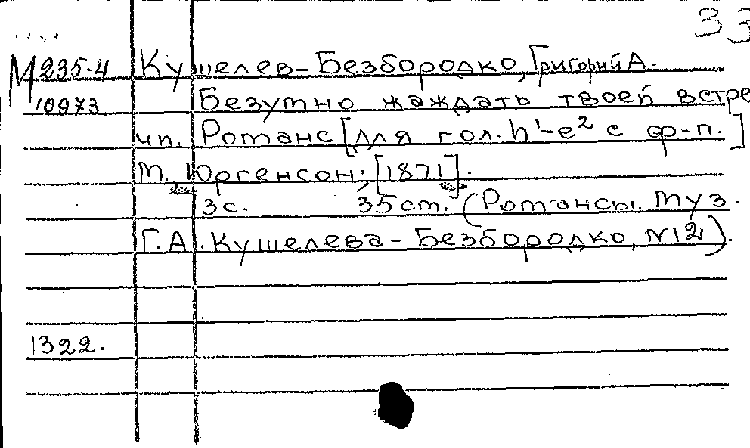 33
М 235-4 Кушелев-Безбородко, Григорий А.
10973 Безумно жаждать твоей встре
чи. Романс [для гол. h¹-e² с ф-п.]
М. Юргенсон; [1871].
3с. 35 см. (Романсы муз.
Г.А. Кушелева-Безбородко, №12).
1322.